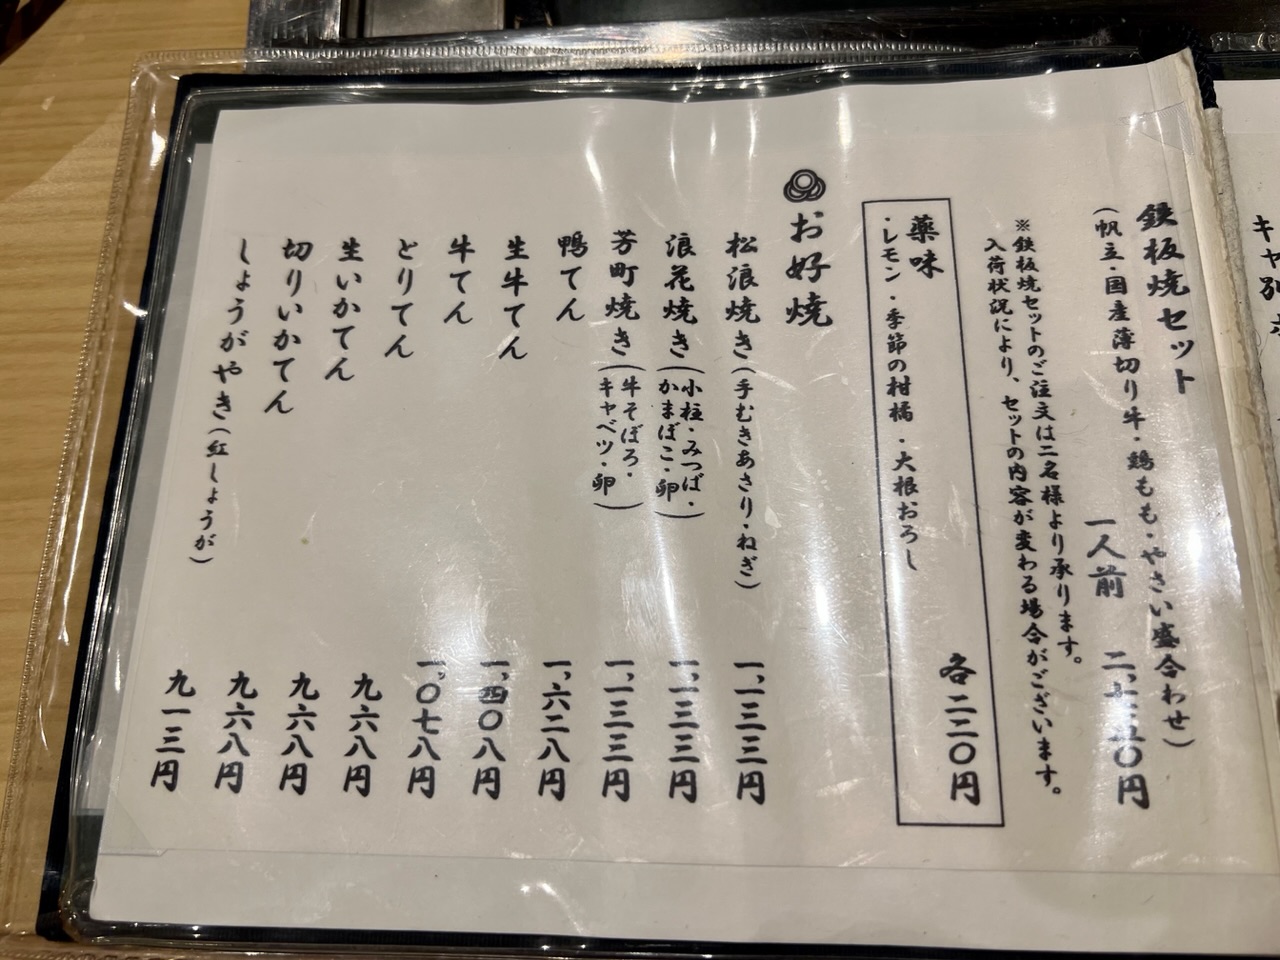 鉄板焼セット
(帆立・国産薄切り牛・鶏もも・やさい盛合わせ)
一人前 二、七五〇円
※鉄板焼セットのご注文は二名様より承ります。
入荷状況により、セットの内容が変わる場合がございます。
薬味 各二二〇円
・レモン・季節の柑橘・大根おろし
お好焼
松浪焼き(手むきあさり・ねぎ) 一、一三三円
浪花焼き(小柱・みつば・かまぼこ・卵) 一、一三三円
芳町焼き(牛そぼろ・キャベツ・卵) 一、一三三円
鴨てん 一、六二八円
生牛てん 一、四〇八円
牛てん 一、〇七八円
とりてん 九六八円
生いかてん 九六八円
切りいかてん 九六八円
しょうがやき(紅しょうが) 九一三円